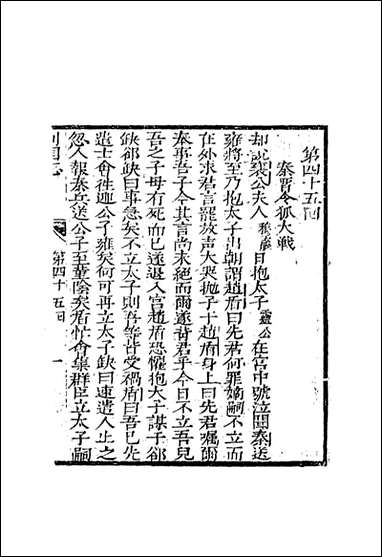 第四十五回
秦晋令狐大戰
却說襄公夫人穆嬴日抱太子靈公在宮中號泣聞秦送
雍將至乃抱太子出朝謂趙盾曰先君何罪嫡嗣不立而
在外求君言罷放聲大哭抛子于趙盾身上曰先君囑爾
奉事吾子今其言尚未絕而爾遂背君乎今日不立吾兒
吾之子母有死而已遂退入宮趙盾恐懼抱太子謀子郤
缺郤缺曰事急矣不立太子則吾等皆受禍盾曰吾已先
造士會徃迎公子雍矣何可再立太子缺曰速遣人止之
忽人報秦兵送公子至菫陰矣盾忙會集群臣立太子嗣
第四十五回 一